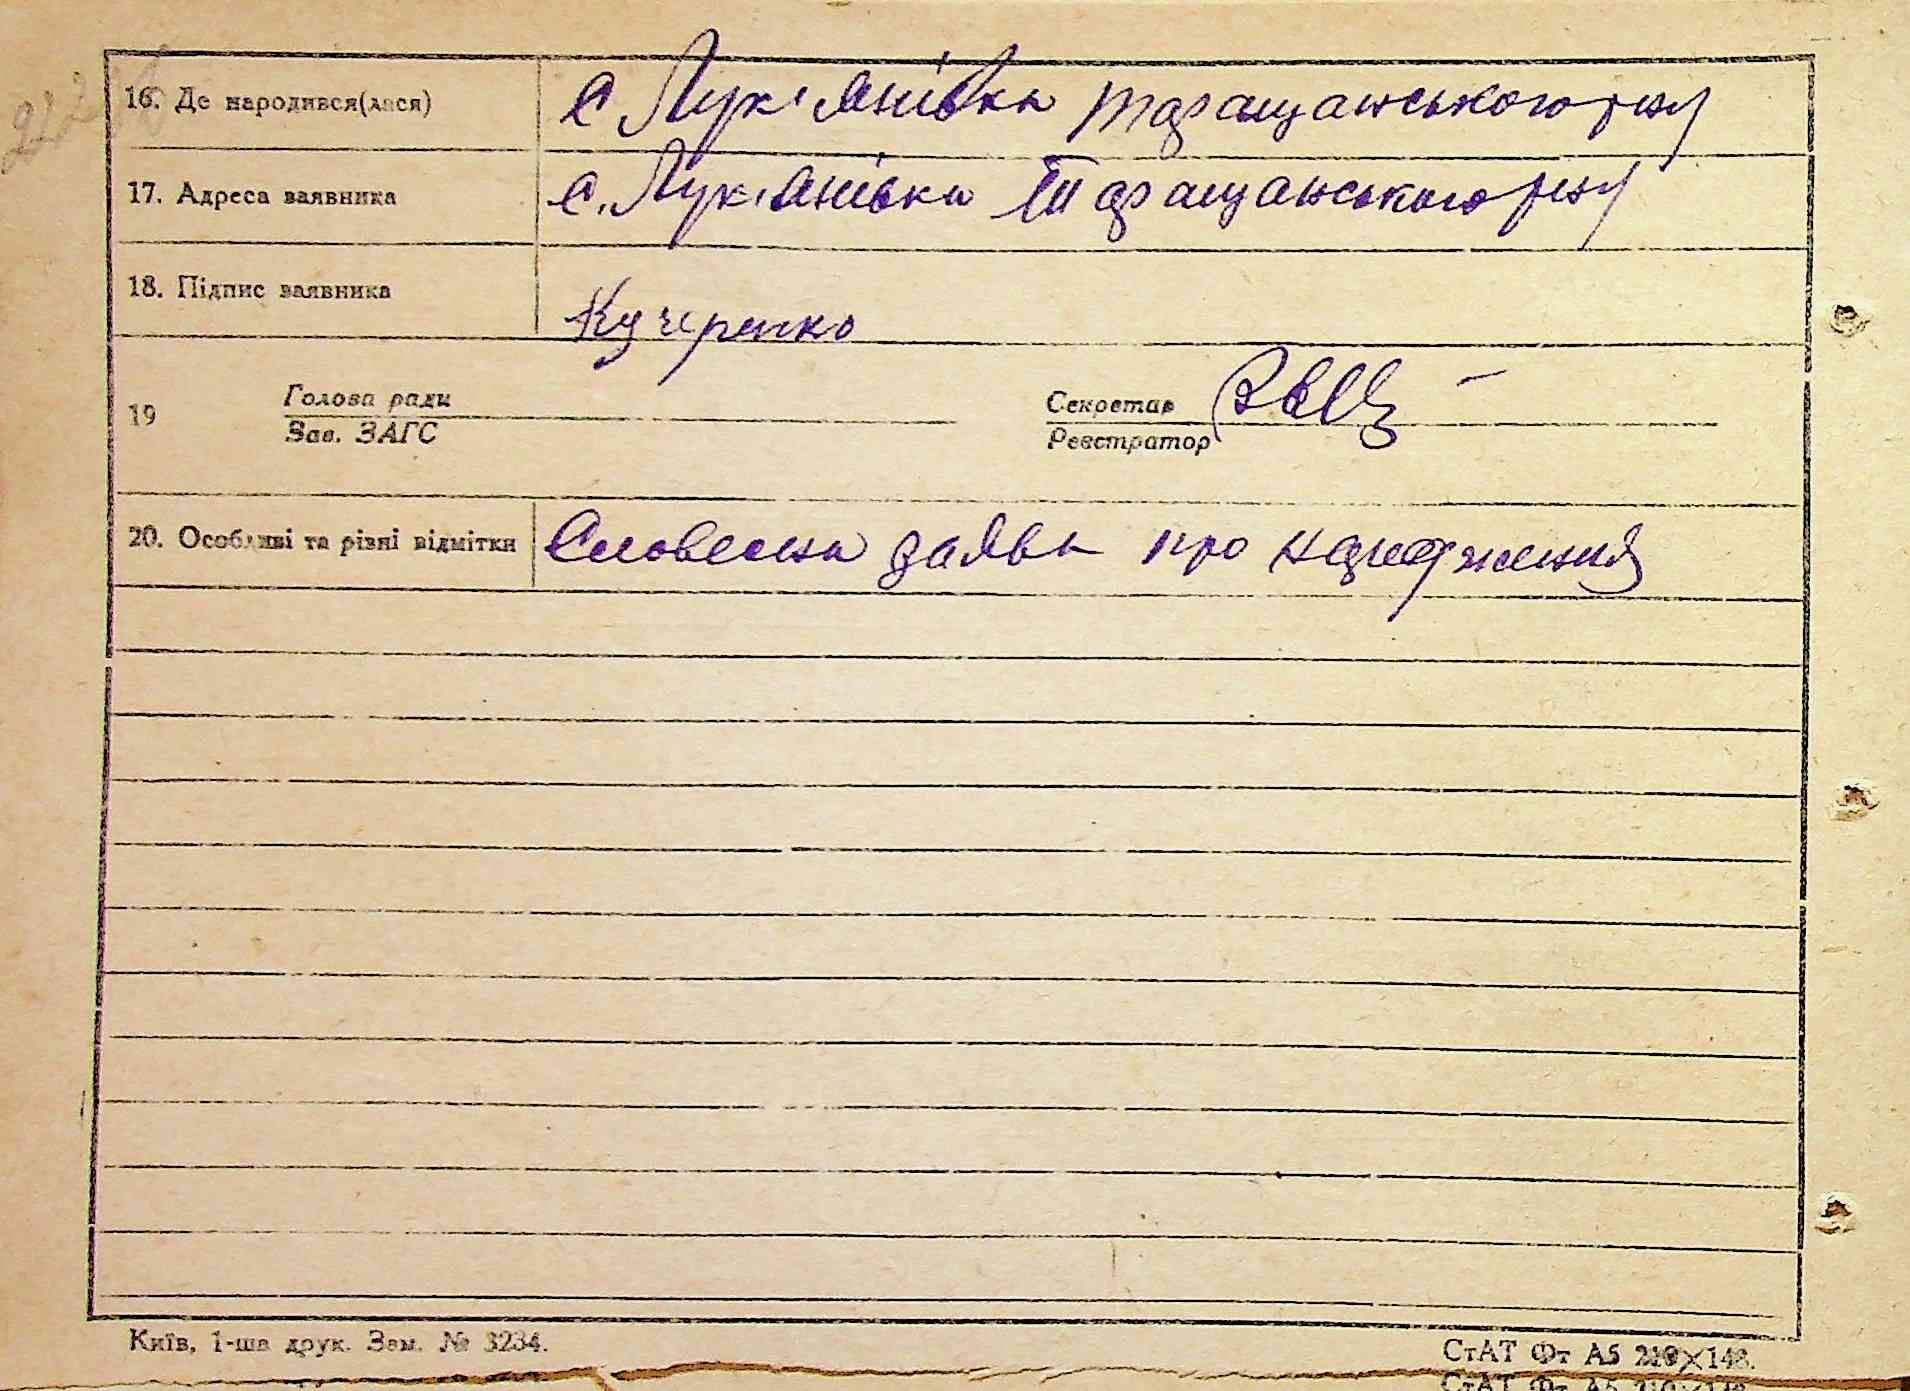 16. Де народився(лася) с Лук'янівка Таращанського р-ну
17. Адреса заявника с. Лук'янівка Таращанського р-ну
18. Підпис заявника Кучеренко
19 Голова ради Секретар
Зав. ЗАГС Реєстратор
20. Особливі та різні відмітки Словесна заява про народження
Київ, 1-ша друк. Зам. № 3234.
СтАТ Фт А5 210×148.
СтАТ Фт А5 210×148